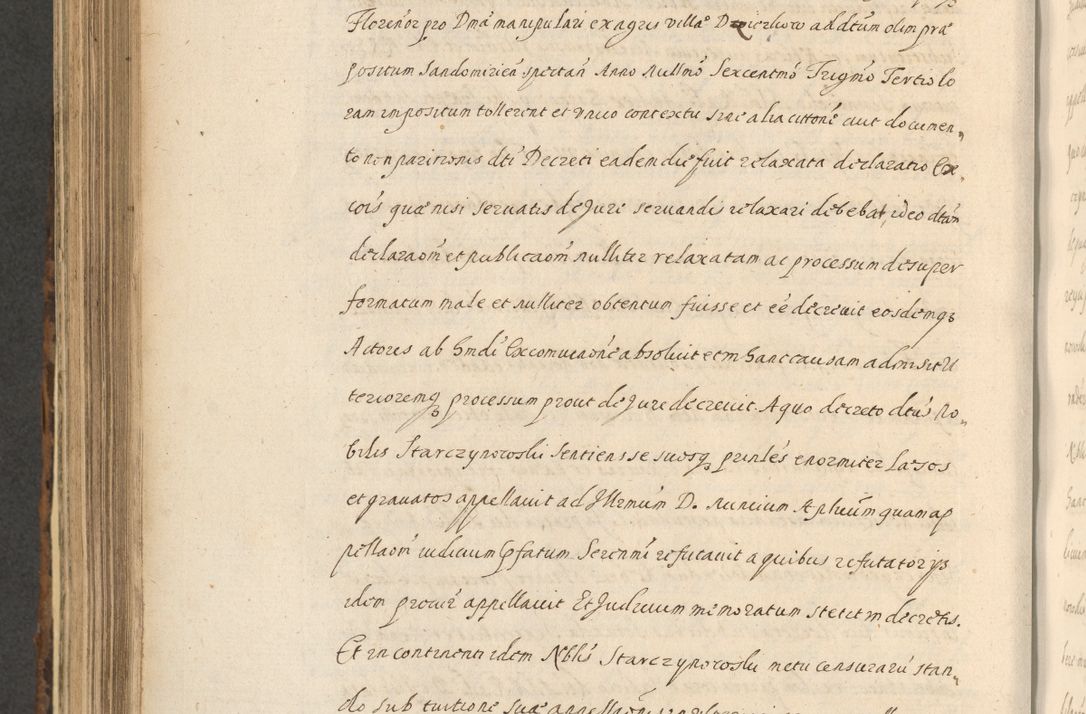 Florenōr pro Dmā manipulari ex agris villae Dzierłow ad dtum olim prae
positum Sandomirien̄ spectan̄ Anno Millmō Sexcentmō Trigmō Tertio lo
ram impositum tollerent et vnico contextu sine alia cittoñe aut documen„
to non paritionis dti Decreti eadem die fuit relaxata declaratio Ex„
cois quae nisi seruatis de Jure seruandis relaxari debebat, ideo dtam
declaraom et publicaom nulliter relaxatam ac processum desuper
formatum male et nulliter obtentum fuisse et eē decreuit eosdemq3
Actores ab hmdi Excomunioñe absoluit etm hanc causam admisit U
terioremq3 processum prout de Jure decreuit. A quo decreto dtus No„
bilis Starczynowski sentiens se suosq3 prinles enormiter laesos
et grauatos appellauit ad Jllrmum D. Nuncium Aplicum quam ap
pellaom iudicium Pfatum Serenmi refutauit a quibus refutatorijs
idem procur appellauit Et Judicium memoratum stetit in decretis.
Et in continenti idem Nblis Starczynowski metu censurarū stan„
do sub tuitione suae appellaōis